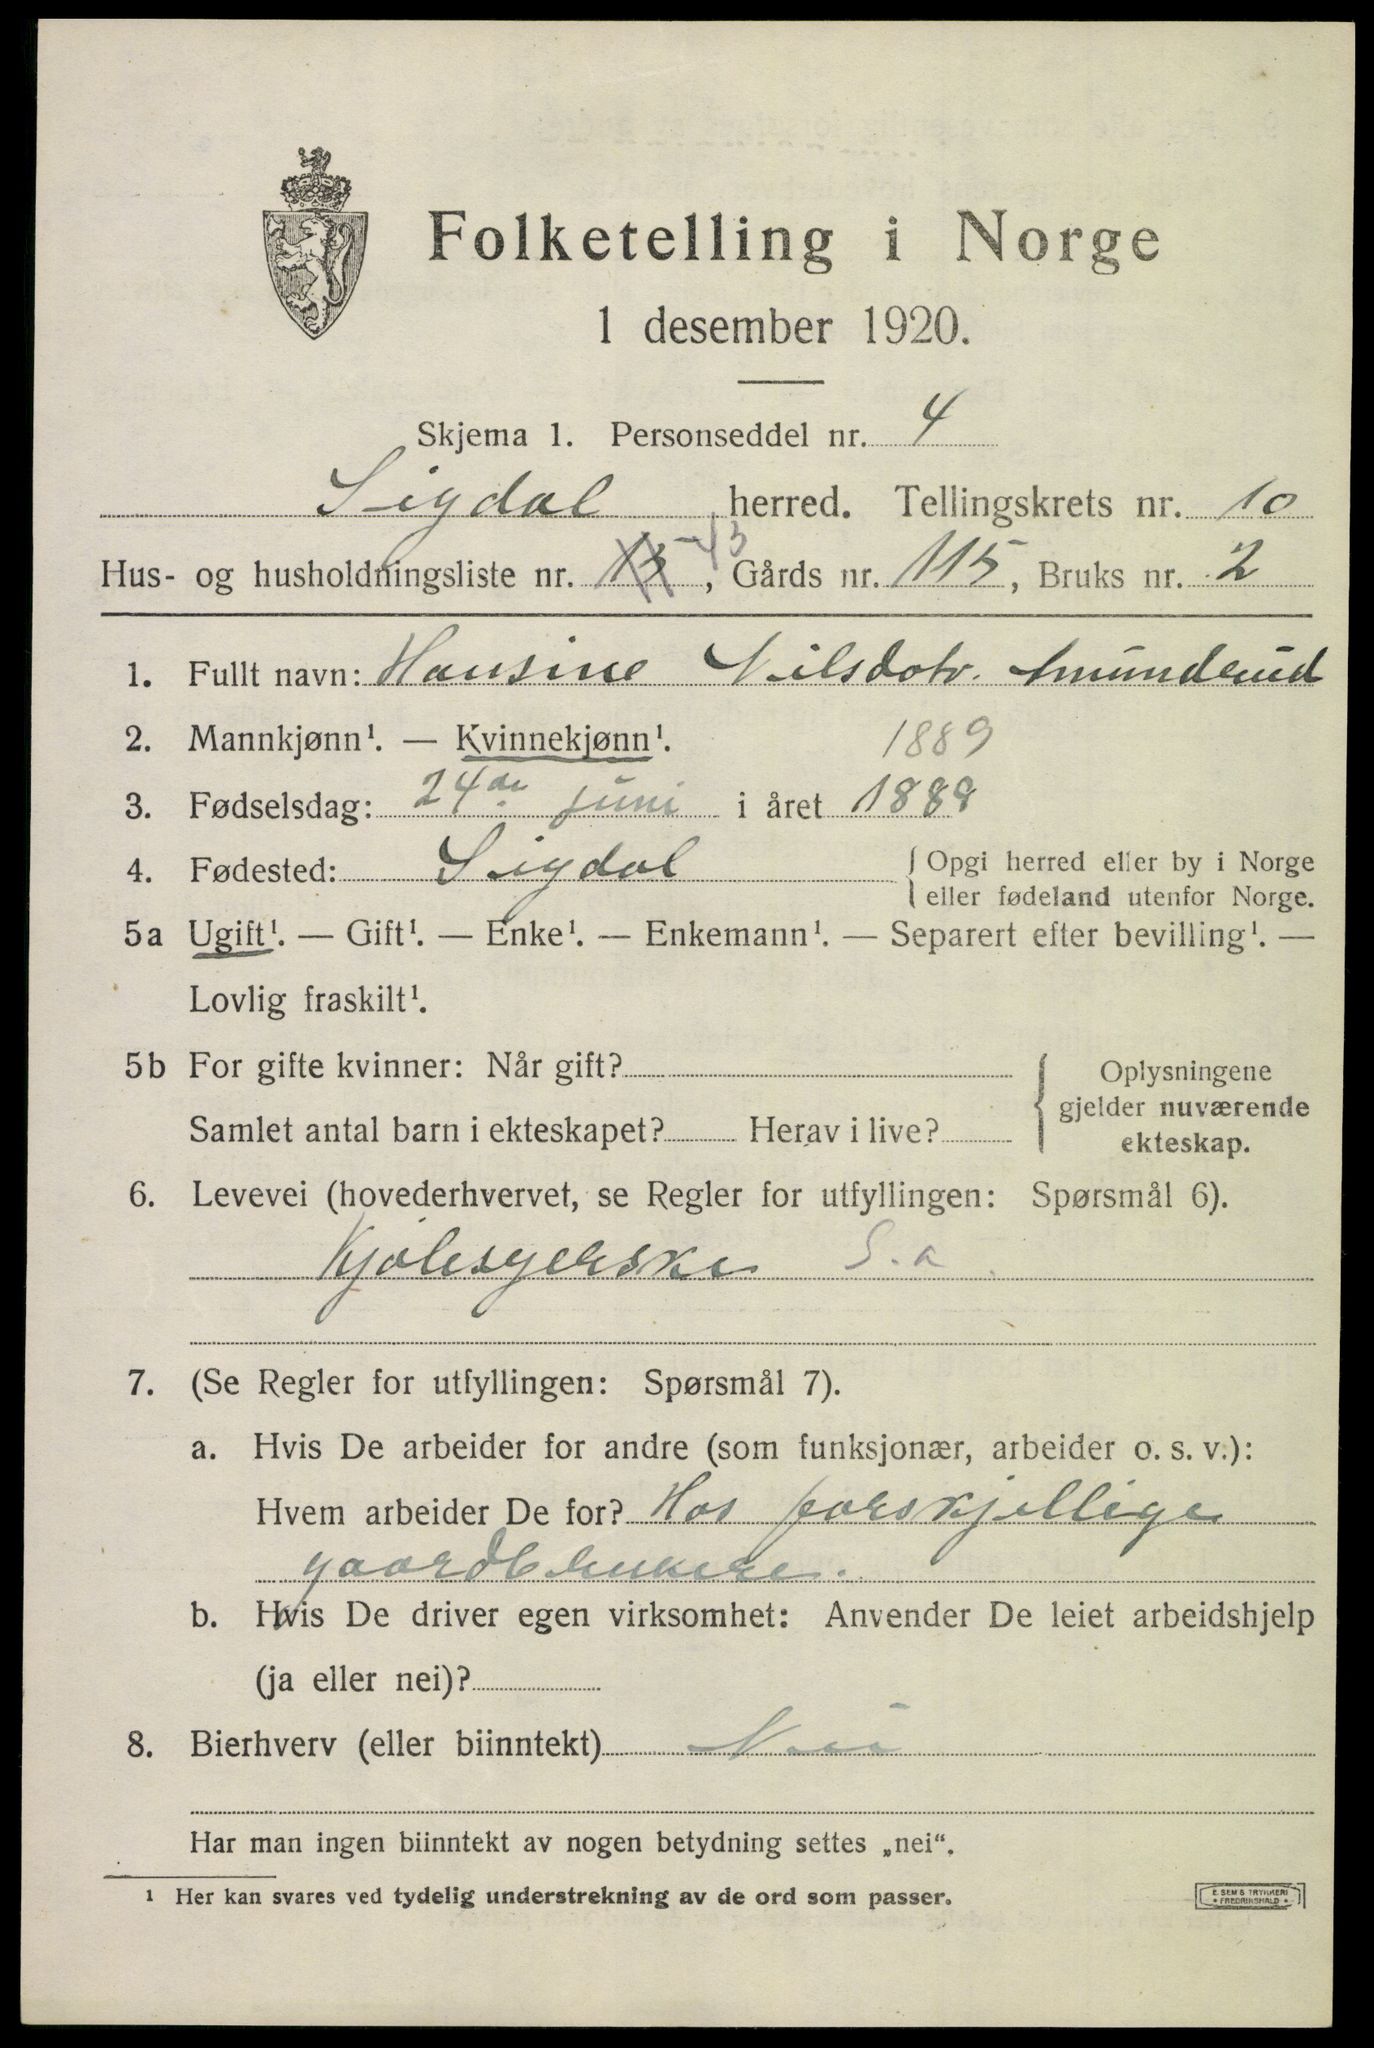 Folketelling i Norge
1 desember 1920.
Skjema 1. Personseddel nr. 4
Sigdal herred. Tellingskrets nr. 10
Hus- og husholdningsliste nr. 13 43, Gårds nr. 115, Bruks nr. 2
1. Fullt navn: Hansine Nilsdotr. Amunderud
2. Mannkjønn¹. — Kvinnekjønn¹. 1889
3. Fødselsdag: 24de juni i året 1889
4. Fødested: Sigdal { Opgi herred eller by i Norge
eller fødeland utenfor Norge.
5a Ugift¹. — Gift¹. — Enke¹. — Enkemann¹. — Separert efter bevilling¹. —
Lovlig fraskilt¹.
5b For gifte kvinner: Når gift?
Samlet antal barn i ekteskapet? Herav i live?
{ Oplysningene
gjelder nuværende
ekteskap.
6. Levevei (hovederhvervet, se Regler for utfyllingen: Spørsmål 6).
Kjolesyerske S. a.
7. (Se Regler for utfyllingen: Spørsmål 7).
a. Hvis De arbeider for andre (som funksjonær, arbeider o. s. v.):
Hvem arbeider De for? Hos forskjellige
gaardbrukere.
b. Hvis De driver egen virksomhet: Anvender De leiet arbeidshjelp
(ja eller nei)?
8. Bierhverv (eller biinntekt) Nei
Har man ingen biinntekt av nogen betydning settes „nei“.
¹ Her kan svares ved tydelig understrekning av de ord som passer.
E. SEM S TRYKKERI
• FREDRIKSHALD •